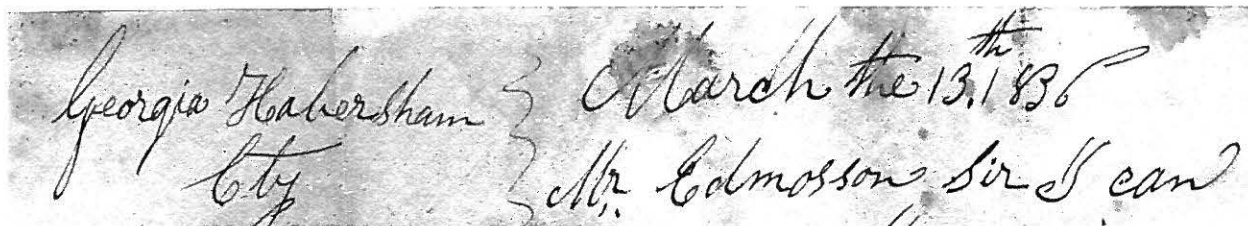 Georgia Habersham } March the 13.th 1836
Cty } Mr. Edmosson Sir I can